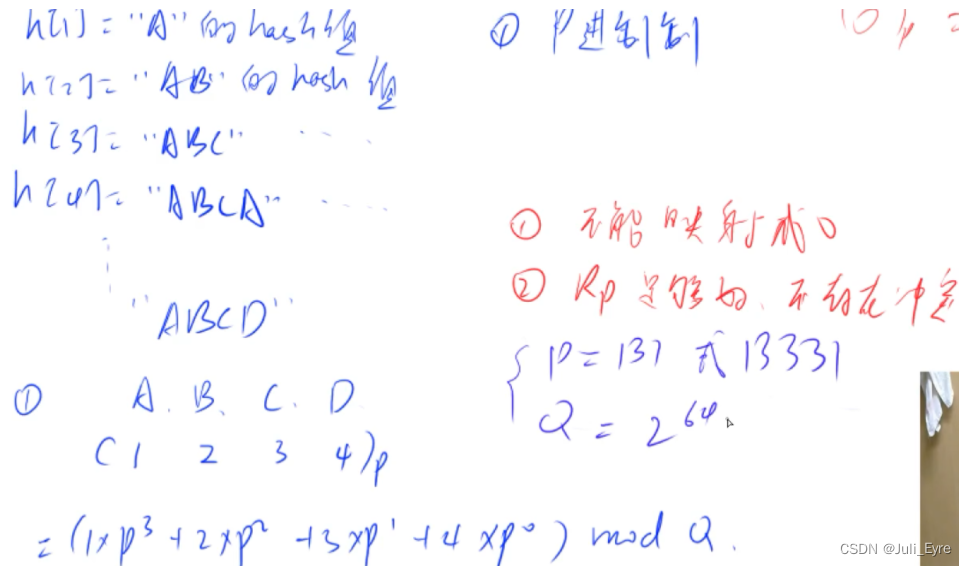 h[1] = "A" 的 hash 值
h[2] = "AB" 的 hash 值
h[3] = "ABC" ....
h[4] = "ABCA" ....
"ABCD"
① A. B. C. D
( 1 2 3 4 )p
= (1×p³ + 2×p² + 3×p¹ + 4×p⁰) mod Q.
① P进制
① 不能映射成0
② Rp足够好、不存在冲突
P = 131 或 13331
Q = 2⁶⁴
CSDN @Juli_Eyre